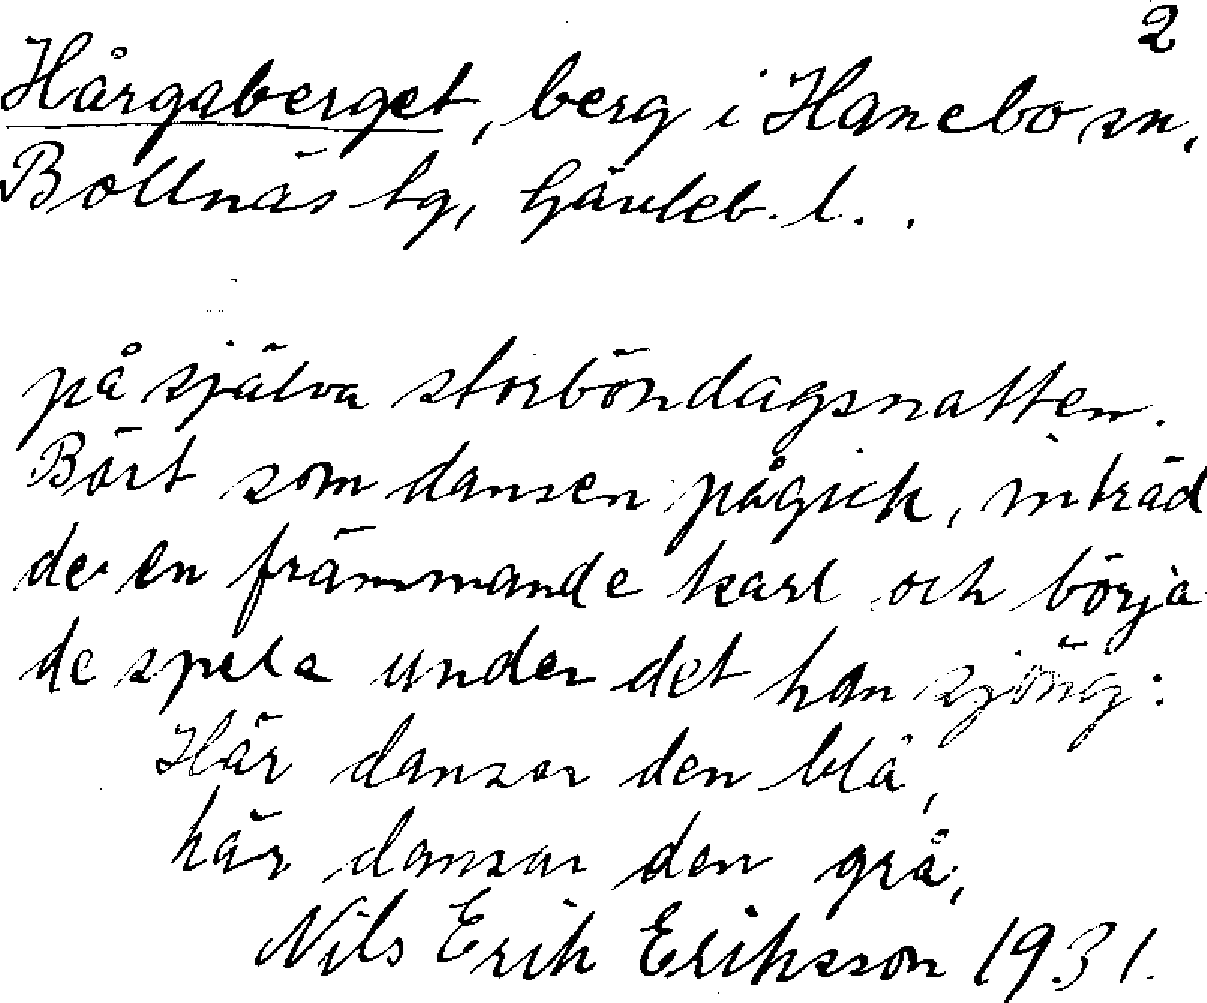 2
Hårgaberget, berg i Hanebo sn,
Bollnäs tg, Gävleb. l. .
på själva storböndagsnatten.
Bäst som dansen pågick, inträd
de en främmande karl och börja
de spela under det han sjöng:
Här dansar den blå,
här dansar den grå,
Nils Erik Eriksson 1931.